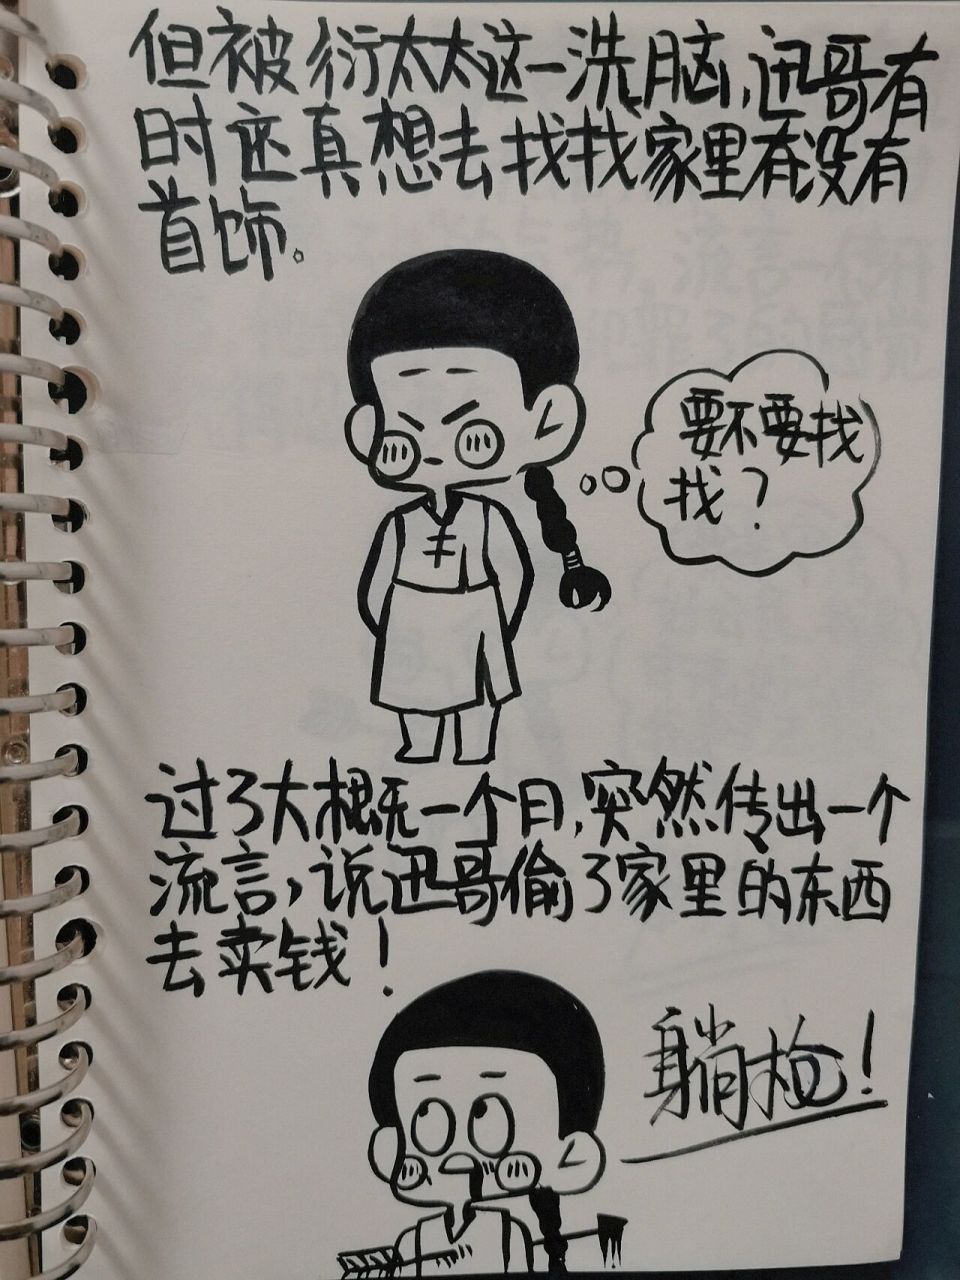 但被衍太太这一洗脑,迅哥有
时还真想去找找家里有没有
首饰。
要不要找
找?
过了大概一个月,突然传出一个
流言,说迅哥偷了家里的东西
去卖钱!
躺枪!